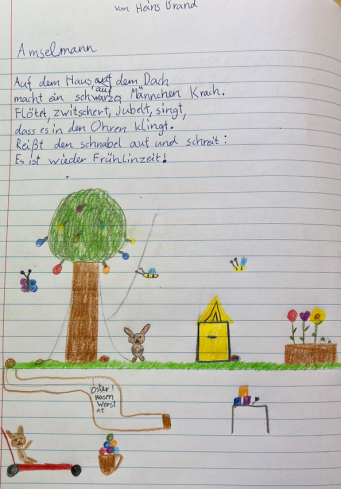 von Hans Brand
Amselmann
Auf dem Haus auf dem Dach
macht ein schwarzes Männchen Krach.
Flötet, zwitschert, jubelt, singt,
dass es in den Ohren klingt.
Reißt den schnabel auf und schreit:
Es ist wieder Frühlinzeit!
Oster
Hasen
Werst